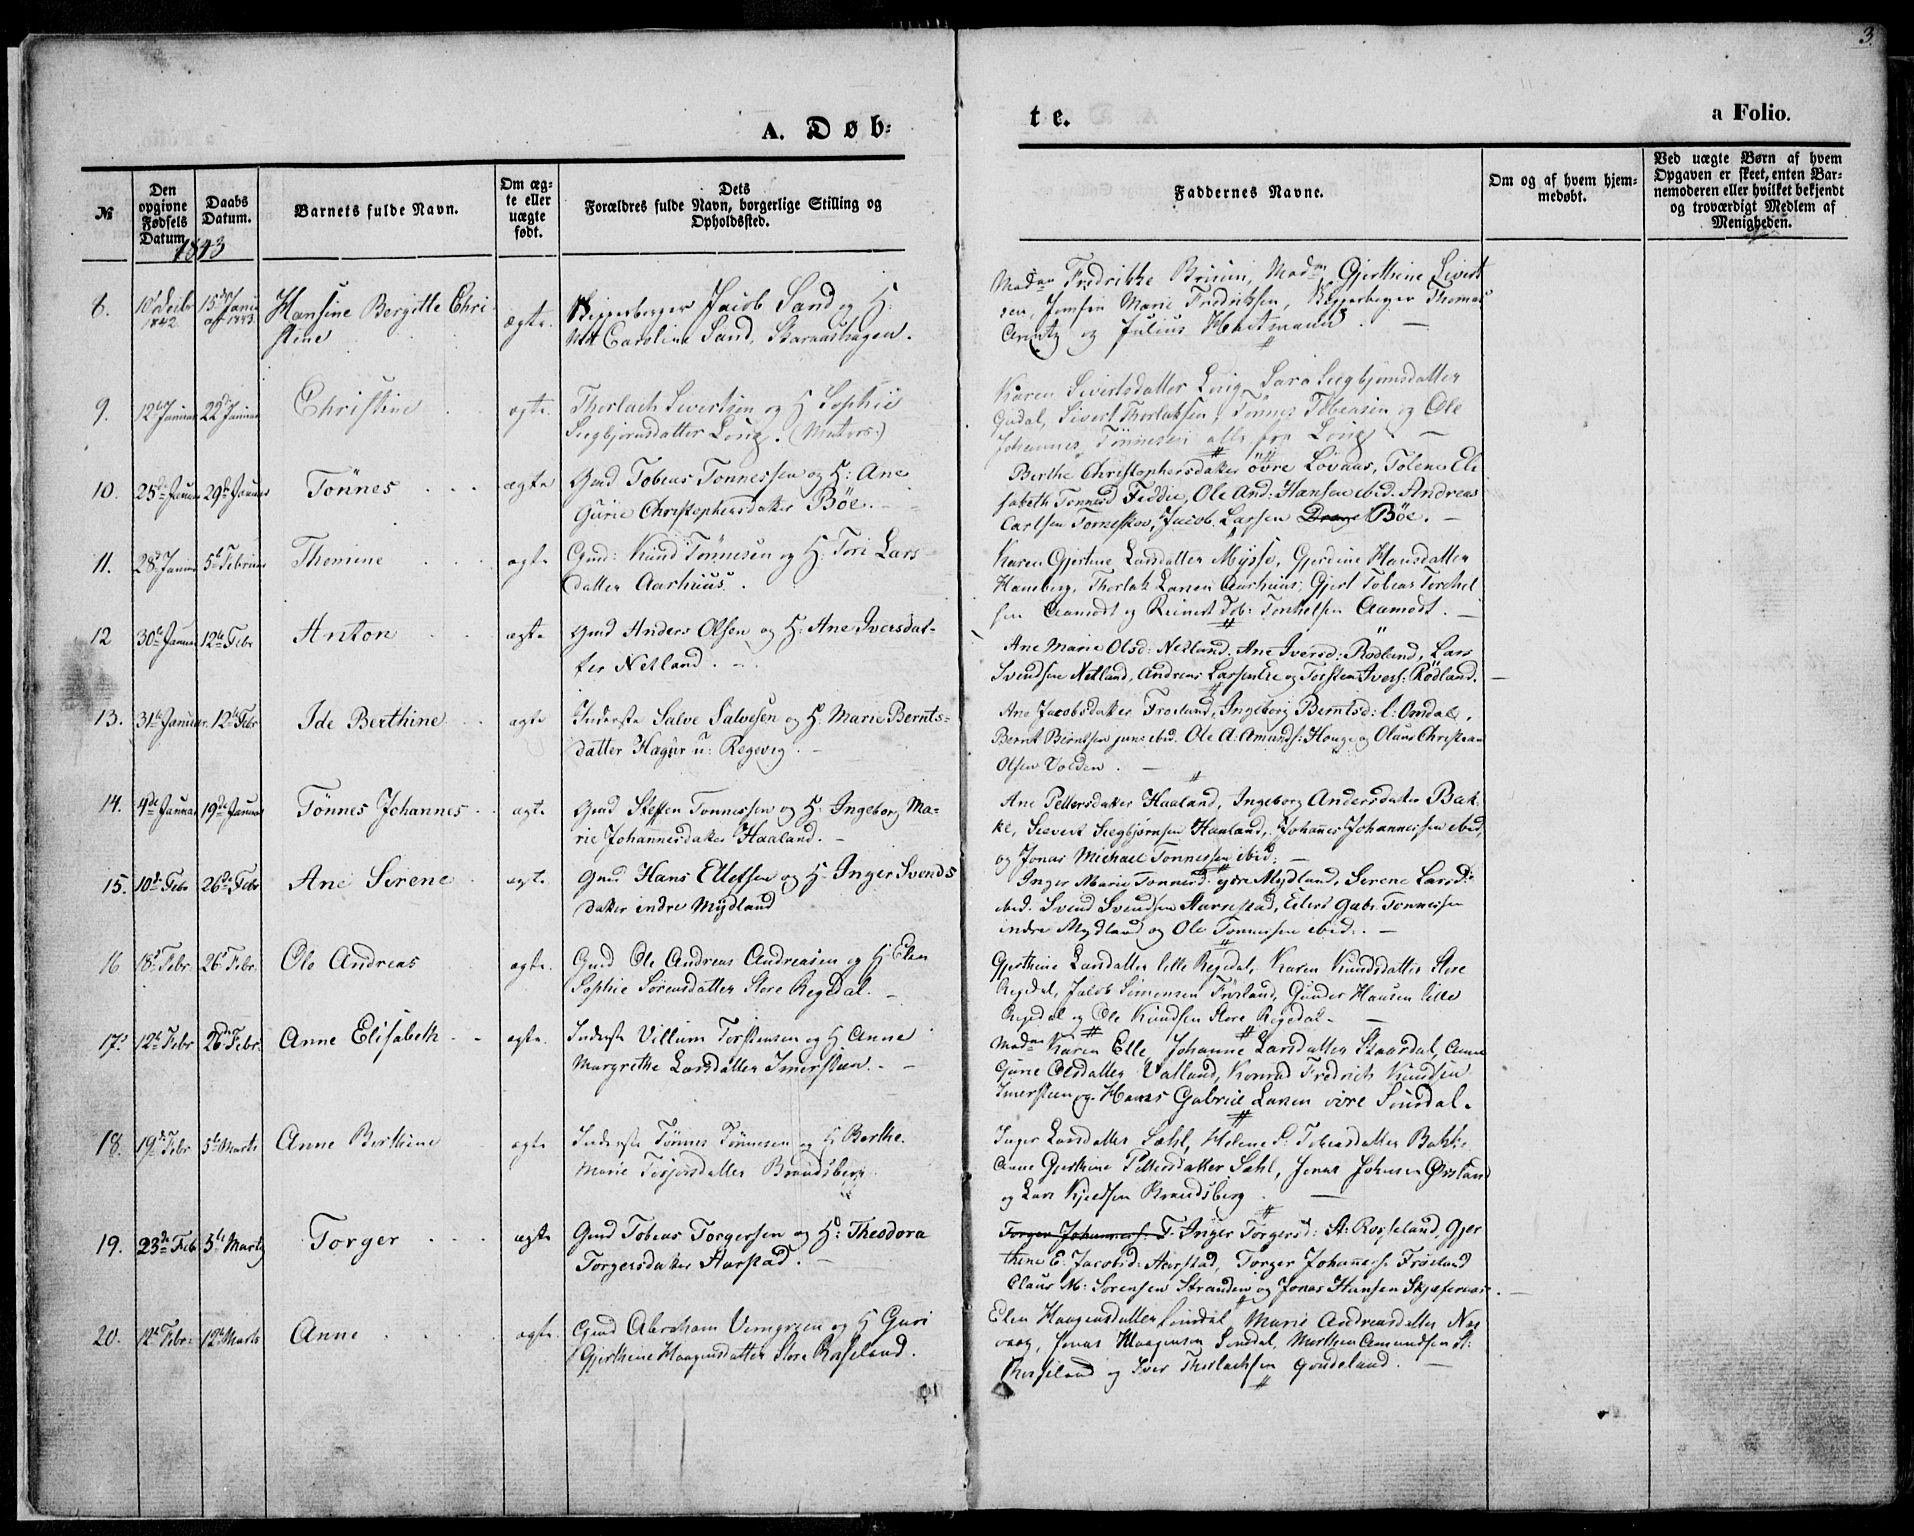 3.
A. Døb=
te.
a Folio.
№
Den opgivne Fødsels Datum.
Daabs Datum.
Barnets fulde Navn.
Om ægte eller uægte født.
Dets
Forældres fulde Navn, borgerlige Stilling og Opholdssted.
Faddernes Navne.
Om og af hvem hjemmedøbt.
Ved uægte Børn af hvem Opgaven er skeet, enten Barnemoderen eller hvilket bekjendt og troværdigt Medlem af Menigheden.
1843
8. 1842 Hansine Bergitte Chri-
stine
ægte. Jacob Sand og H:
Caroline Sand,
Fredrikke Gjerthine Sivert
sen, Jensen Marie Fredriksen, Thomas
og Julius Hartmann
9. 12te Januar 22de Januar Christine ægte. Thorlach Sivertsen og H Sophie
Siegbjørnsdatter Løng.
Karen Sivertsdatter Løng, Sara Siegbjørnsdatter
Sivert Thorlaksen, Tønnes Tobiasen og Ole
Johannes Tønnesen alle fra Løng
10. 25de Januar 29de Januar Tönnes ægte Gmd Tobias Tonnessen og H: Ane
Gurie Christophersdatter Böe.
Berthe Christophersdatter övre Lovaas, Tolene Eli
sabeth Tonnesd Feddie, Ole And: Hansen ibid. Andreas
Carlsen Torneskov, Jacob Larsen Drange Böe.
11. 28de Januar 5te Februar Thomine ægte Gmd: Knud Tønnesen og H. Tori Lars-
datter Aarhuus.
Karen Gjertine Larsdatter Mysse, Gjerdine Hansdatter
Haneberg, Thorlak Larsen Aarhuus, Gjert Tobias Torchel
sen Aamodt og Reinert Tob: Torkelsen Aamodt.
12 30te Januar 12te Febr Anton ægte Gmd Anders Olsen og H: Ane Iversdat-
ter Netland.
Ane Marie Olsd: Netland. Ane Iversd: Rödland, Lars
Svendsen Netland, Andreas Larsen Ere og Torsten Ivers: Rödland.
13. 31te Januar. 12te Febr Ide Berthine ægte Inderste Salve Salvesen og H. Marie Bernts-
datter Hagur u: Regevig.
Ane Jacobsdatter Froeland, Ingeborg Berntsd: l: Omdal,
Bernt Berntsen juns ibid. Ole A: Amunds: Houge og Olaus Christian
Olsen Volden.
14. 4de Januar 19de Januar Tönnes Johannes ægte Gmd Steffen Tonnessen og H. Ingeborg Ma-
rie Johannesdatter Haaland.
Ane Pettersdatter Haaland, Ingeborg Andersdatter Bak-
ke, Sievert Siegbjørnsen Haaland, Johannes Johannessen ibid,
og Jonas Michael Tonnessen ibid:
15. 10de Febr 26de Febr Ane Serene ægte. Gmd Hans Ellefsen og H. Inger Svends
datter indre Mydland
Inger Marie Tonnesd ydre Mydland, Serene Larsd:
ibid. Svend Svendsen Aarrestad, Eilert Gabr. Tonnessen
indre Mydland og Ole Tonnessen ibid:
16 18de Febr 26de Febr. Ole Andreas ægte. Gmd Ole Andreas Andreasen og H Elen
Sophie Sørensdatter Store Regedal.
Gjerthine Larsdatter lille Regedal, Karen Knudsdatter Store
Regedal, Jakob Simonsen Frøsland, Gunder Hansen lille
Regedal og Ole Knudsen Store Regedal.
17. 12te Febr 26de Febr. Anne Elisabeth ægte. Inderste Villum Torstensen og H Anne
Margrethe Larsdatter Imersteen.
Madm Karen Elle, Johanne Larsdatter Skaardal, Anne
Gurie Olsdatter Valland, Konrad Fredrich Knudsen
Imersteen og Hans Gabriel Larsen övre Sirdal.
18. 19de Febr 5te Marts Anne Berthine ægte Inderste Tönnes Tönnesen og H Berthe
Marie Torjersdatter Brandsberg.
Inger Larsdatter Sæhl, Helene S. Tobiasdatter Bakke
Anne Gjerthine Pettersdatter Sæhl, Jonas Johnsen
og Lars Kjeldsen Brandsberg.
19. 23de Feb 5te Marts Torger ægte Gmd Tobias Torgersen og H: Theodora
Torgersdatter Harstad.
Torger Johanness. T Inger Torgersd: St: Rosseland, Gjer
thine E. Jacobsd: Aarstad, Torger Johanness. Froeland
Claus M: Sorensen Stranden og Jonas Hansen
20. 12te Febr. 12te Marts Anne ægte. Gmd Abraham og H Guri
Gjerthine Haagensdatter Store Rosseland.
Elen Haagensdatter Sirdal, Marie Andreasdatter Næs
vaag, Jonas Haagensen Sirdal, Mathias Amundsen St:
Rosseland og Iver Thorlachsen Gaudeland.